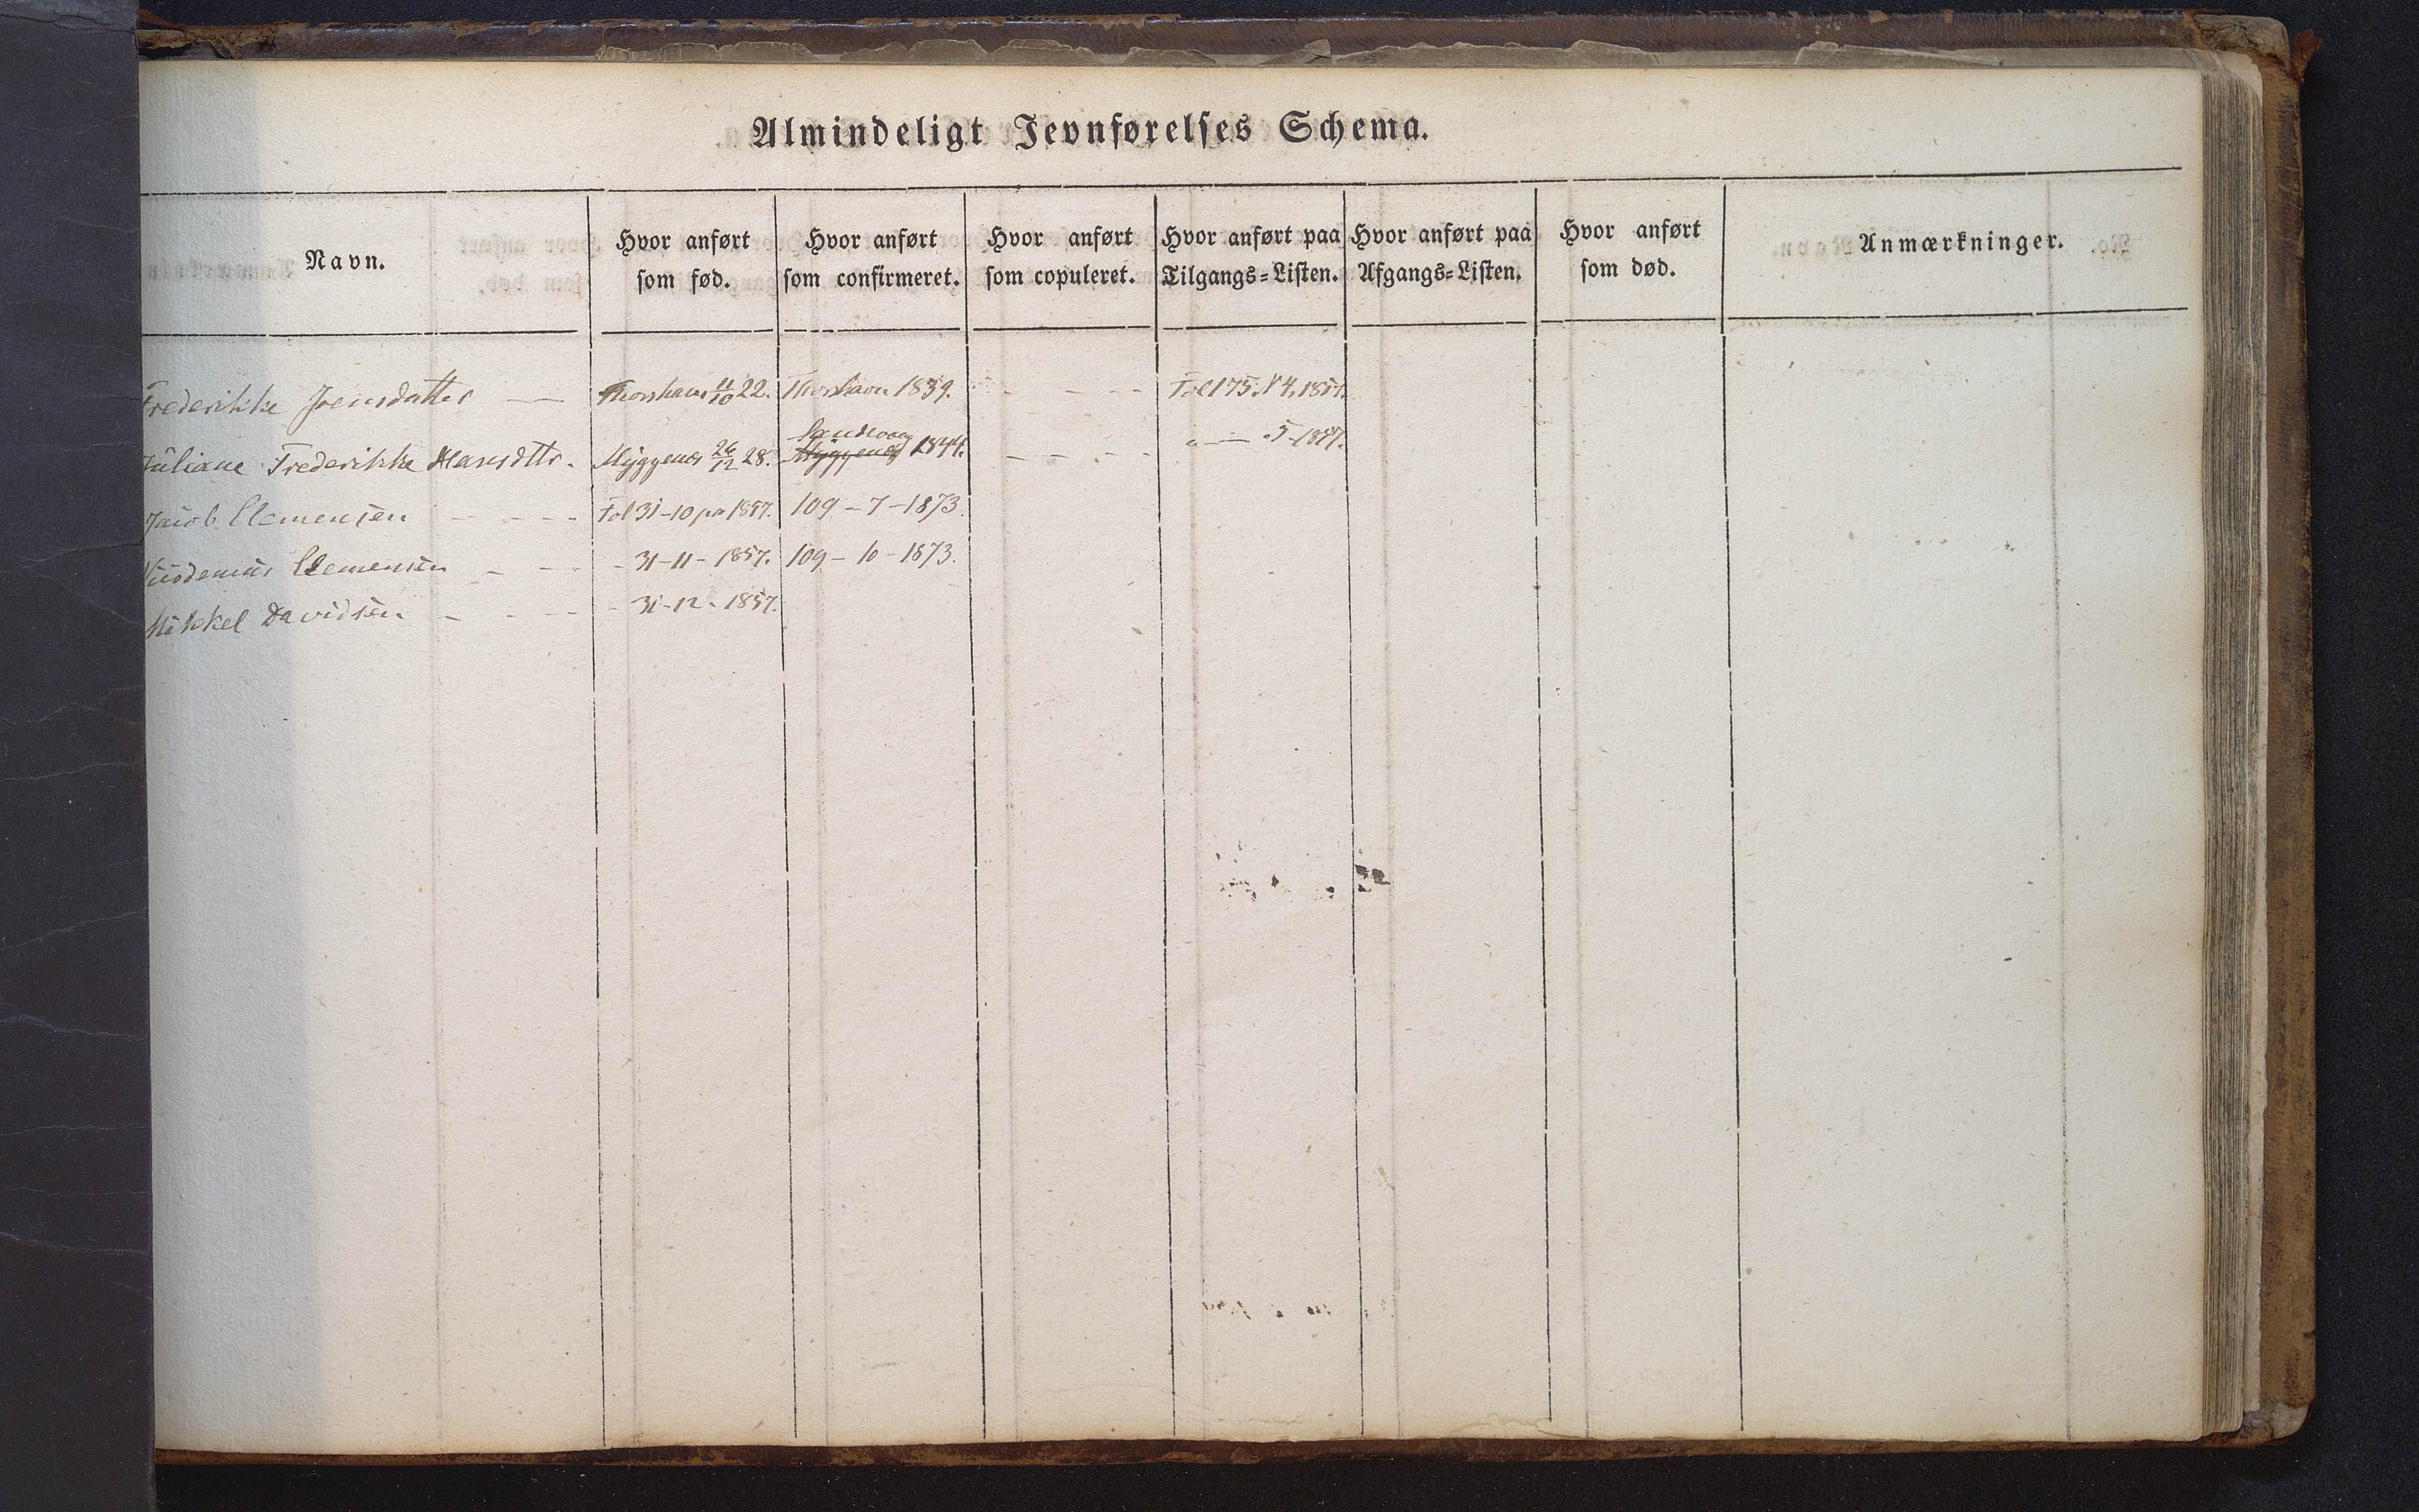 Almindeligt Jevnførelses Schema.
Navn.
Hvor anført som fød.
Hvor anført som confirmeret.
Hvor anført som copuleret.
Hvor anført paa Tilgangs=Listen.
Hvor anført paa Afgangs=Listen.
Hvor anført som død.
Anmærkninger.
Frederikke Joensdatter — Thorshavn 11/10 22. Thorshavn 1839. - - - Fol 175. N 4, 1857.
Sandvaag
Juliane Frederikke Hansdttr. Myggenæs 26/12 28. Myggenæs 1844. - - - - „ — 5 - 1857.
Jacob Clemensen - - - - Fol 31 - 10 pro 1857. 109 - 7 - 1873.
Clemensen - - - 31 - 11 - 1857. 109 - 10 - 1873.
Mikkel Davidsen - - - - 31 - 12 - 1857.